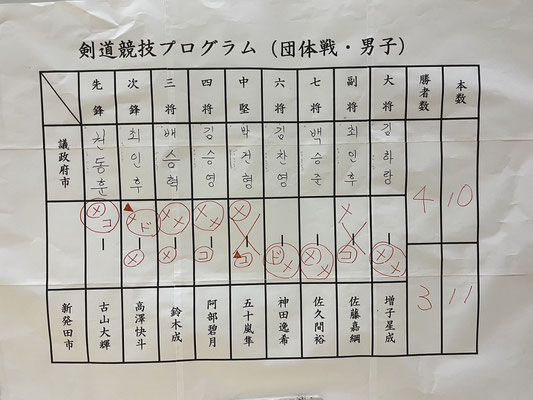 剣道競技プログラム（団体戦・男子）
先鋒 次鋒 三将 四将 中堅 六将 七将 副将 大将 勝者数 本数
議政府市 천동훈 최인후 배승혁 김승영 박건형 김찬영 백승준 최인후 김하랑 4 10
メコ メド メメ メメ メ メ
メ メ コ コ ドメ メメ コ メメ
新発田市 古山大輝 高澤快斗 鈴木成 阿部碧月 五十嵐隼 神田逸希 佐久間裕 佐藤嘉綱 増子星成 3 11